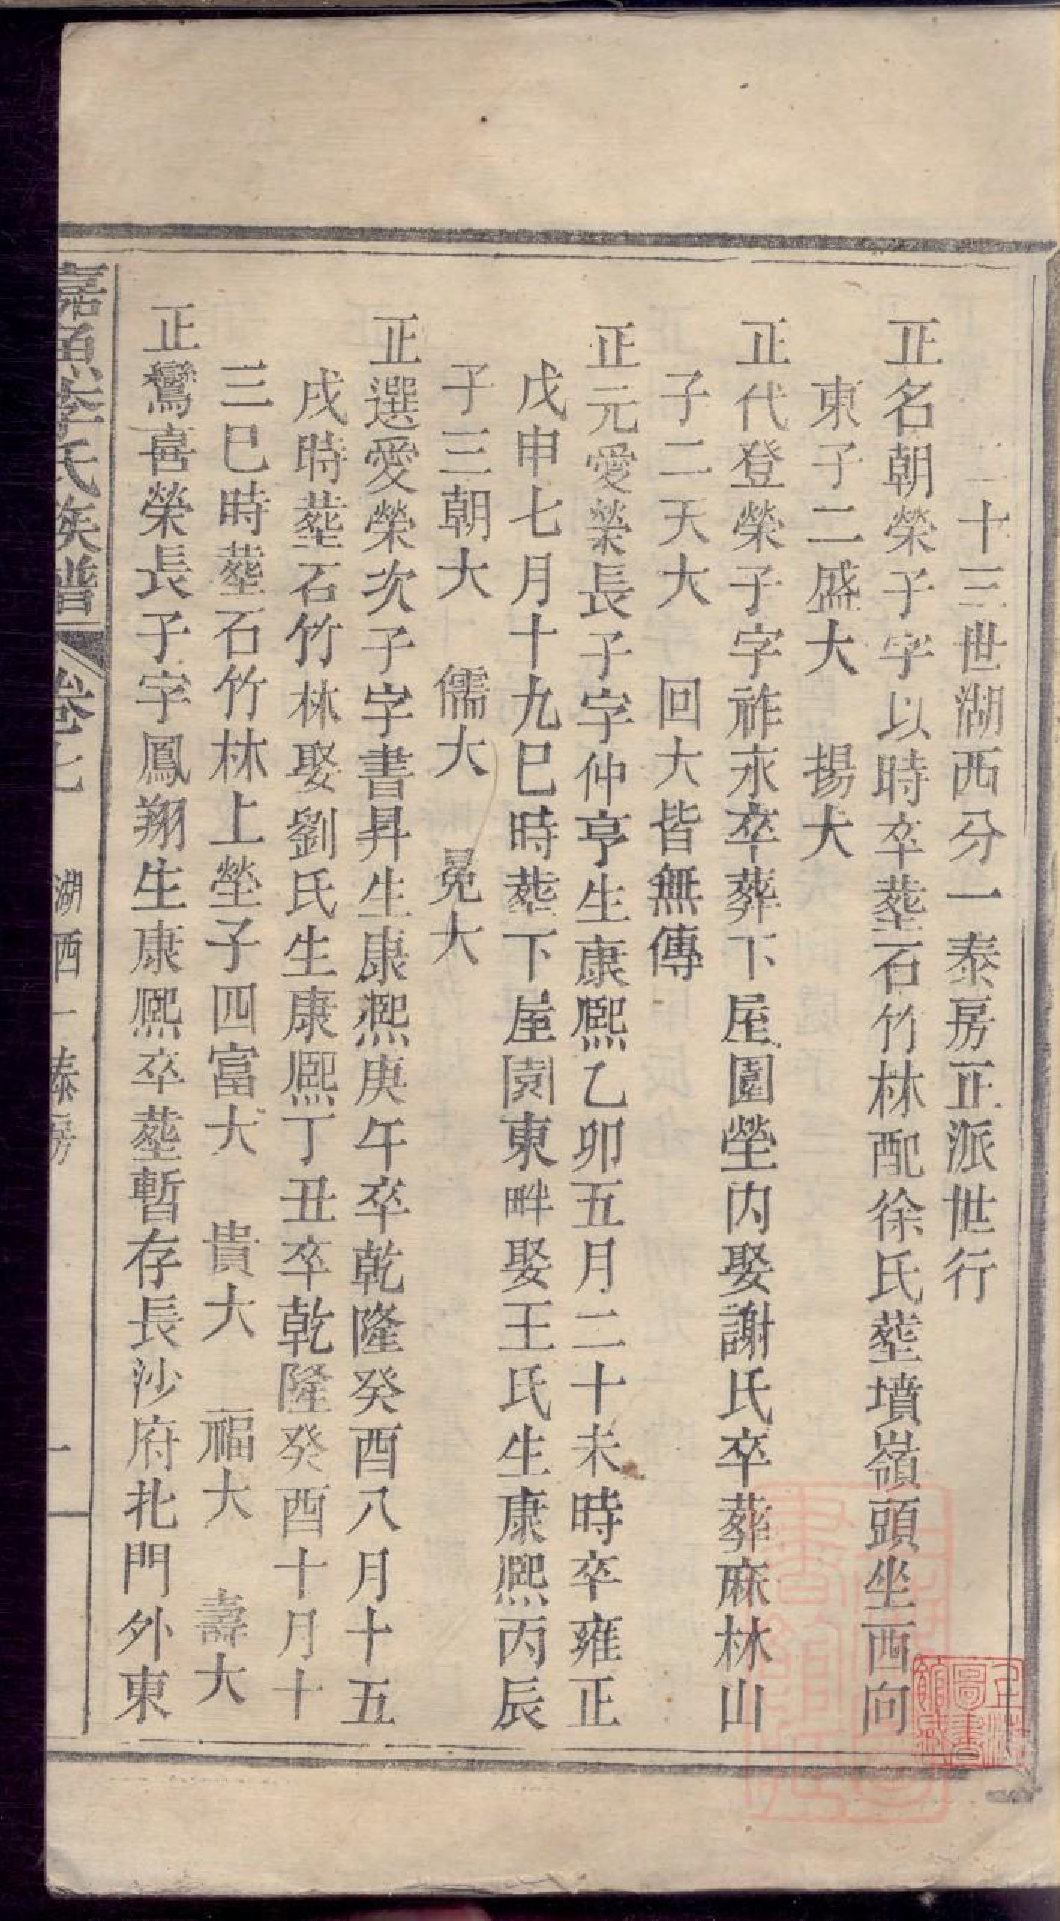 二十三世湖西分一泰房正派世行
正名朝榮子字以時卒塟石竹林配徐氏塟墳嶺頭坐西向
東子二盛大　揚大
正代登榮子字祚永卒葬下屋園塋内娶謝氏卒葬麻林山
子二天大　回大皆無傳
正元愛榮長子字仲亨生康熙乙卯五月二十未時卒雍正
戊申七月十九巳時塟下屋園東畔娶王氏生康熙丙辰
子三朝大　儒大　冕大
正選愛榮次子字書昇生康熙庚午卒乾隆癸酉八月十五
戌時塟石竹林娶劉氏生康熙丁丑卒乾隆癸酉十月十
三巳時塟石竹林上塋子四富大　貴大　福大　壽大
正鸞喜榮長子字鳳翔生康熙卒塟暫存長沙府北門外東
嘉魚李氏族譜　卷七　湖西一泰房　一